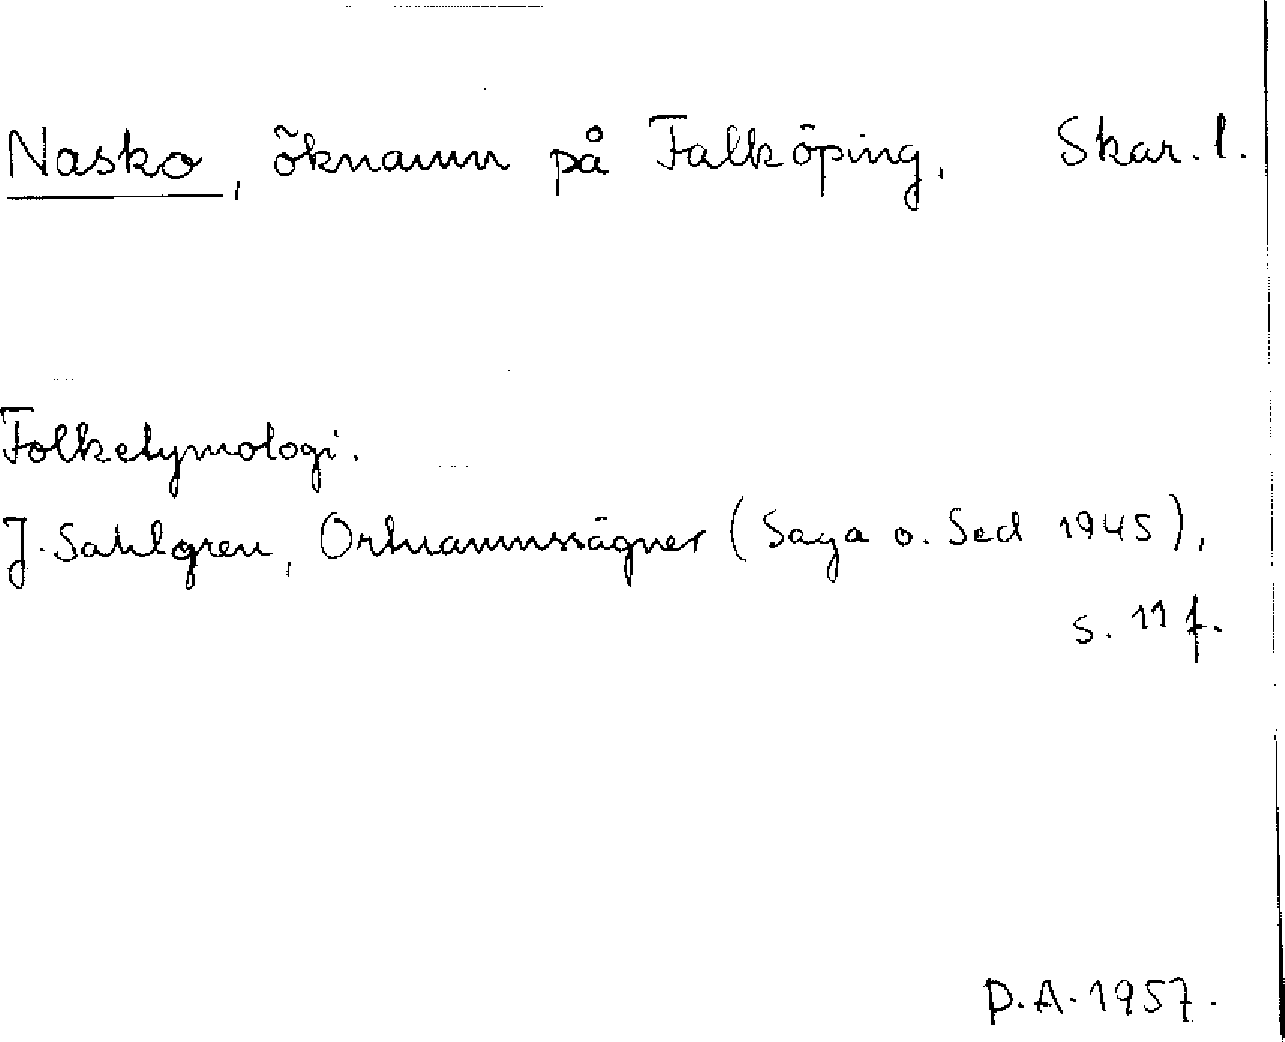 Nasko, öknamn på Falköping. Skar. l.
Folketymologi.
J. Sahlgren, Ortnamnssägner (Saga o. Sed 1945),
s. 11 f.
P.A. 1957.